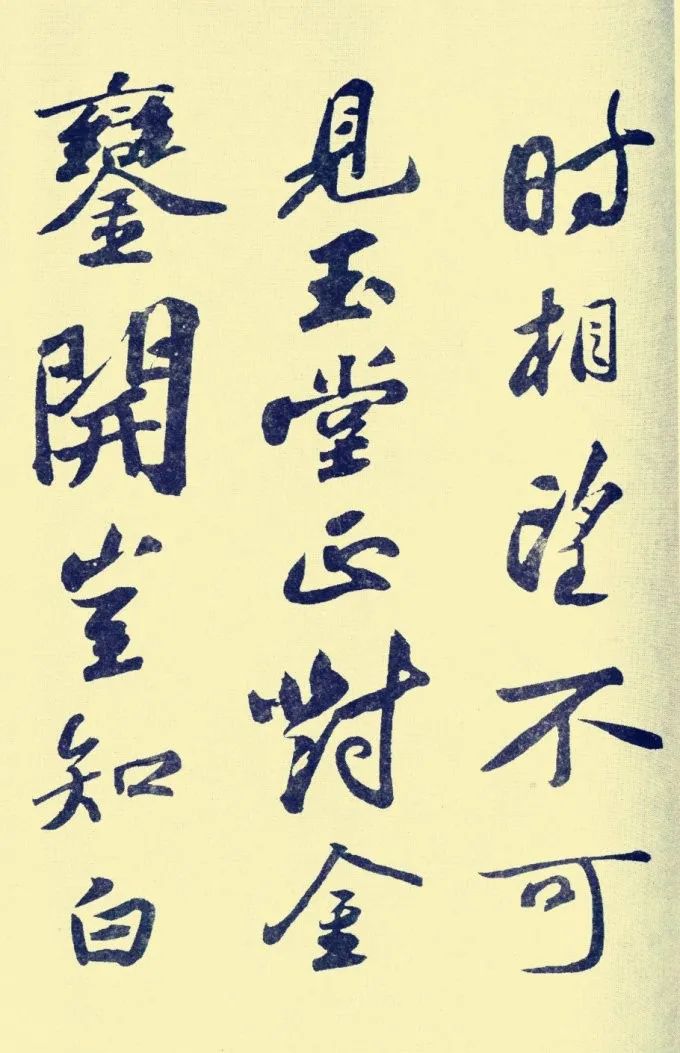 时相望不可
見玉堂正對金
鑾開豈知白